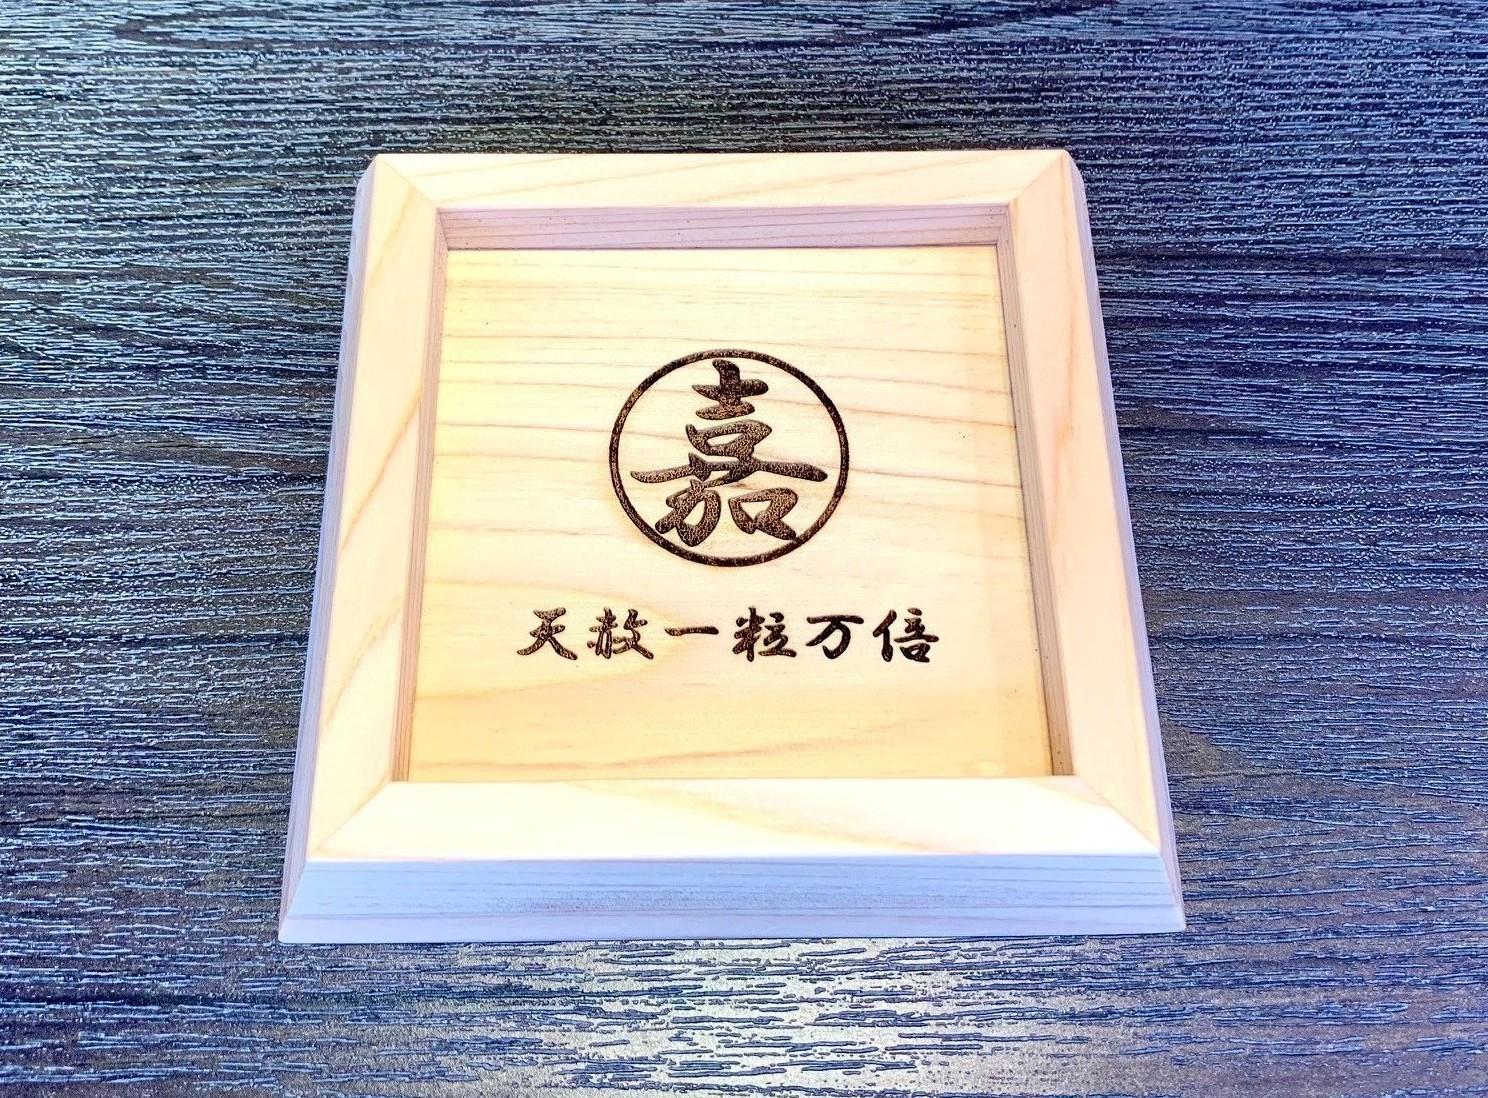 嘉
天赦一粒万倍